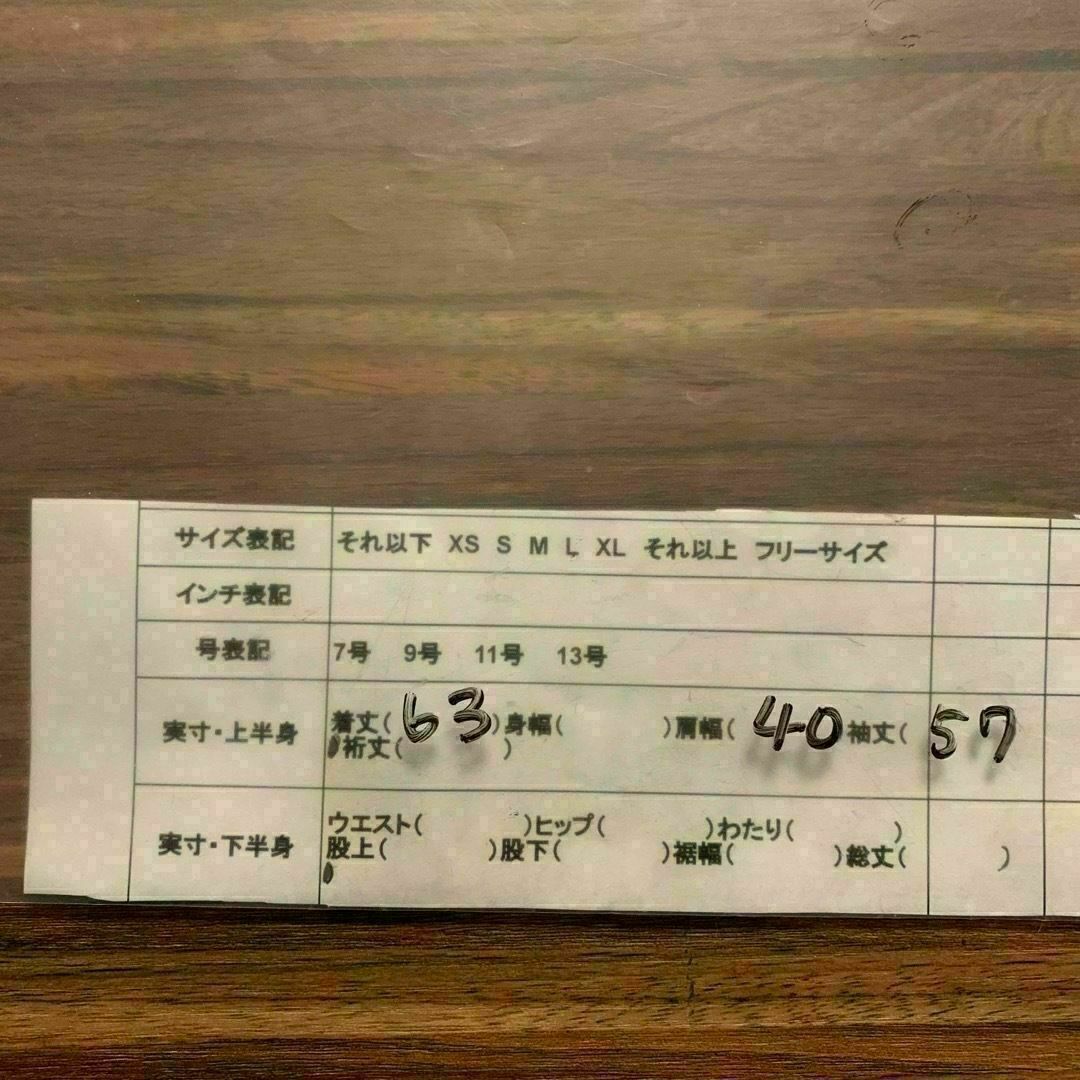 サイズ表記 それ以下 XS S M L XL それ以上 フリーサイズ
インチ表記
号表記 7号 9号 11号 13号
実寸・上半身 着丈( 63 )身幅( )肩幅( 40 袖丈( 57
裄丈( )
実寸・下半身 ウエスト( )ヒップ( )わたり( )
股上( )股下( )裾幅( )総丈( )